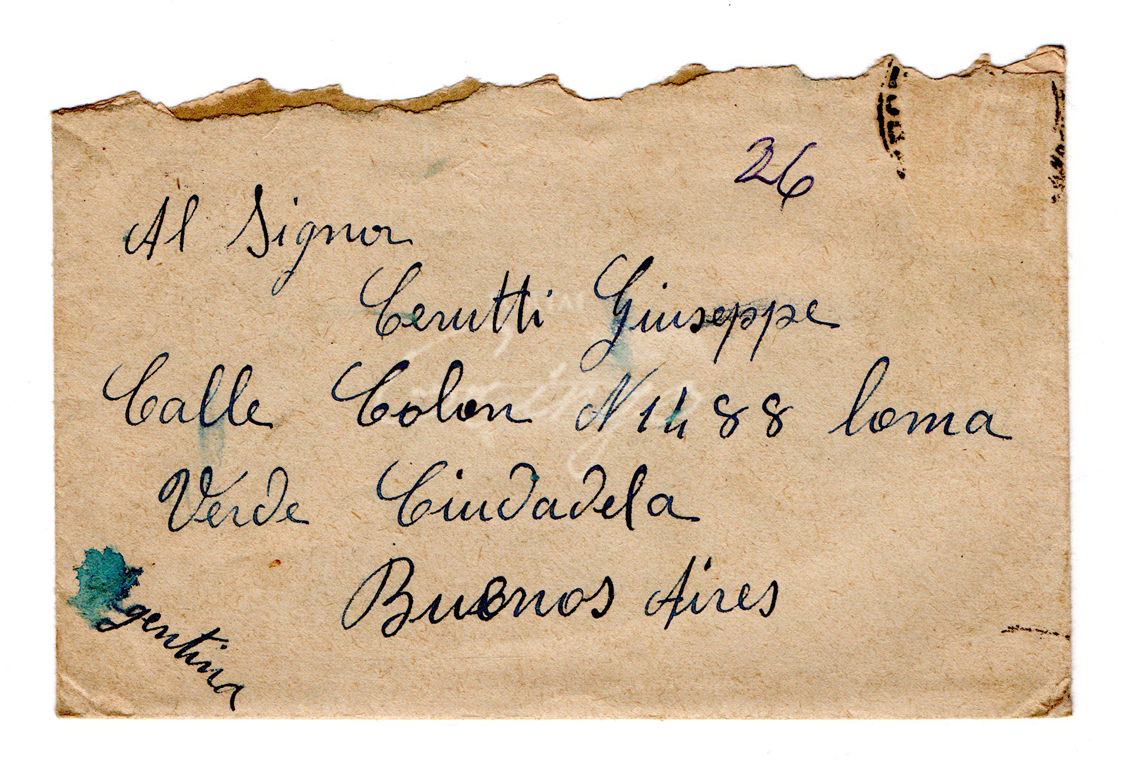 26
Al Signor
Cerutti Giuseppe
Calle Colon N 1488 loma
Verde Ciudadela
Buenos Aires
gentina